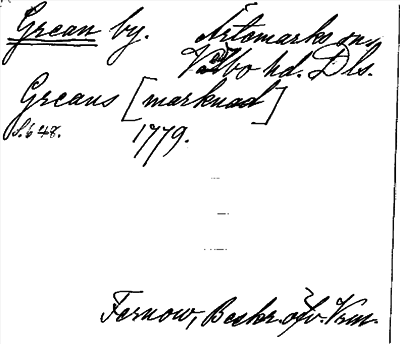 Grean by. Ärtemarks sn,
Vedbo hd. Dls.
Greans [marknad]
S. 648. 1779.
Fernow, Beskr. öfv. Vrm.